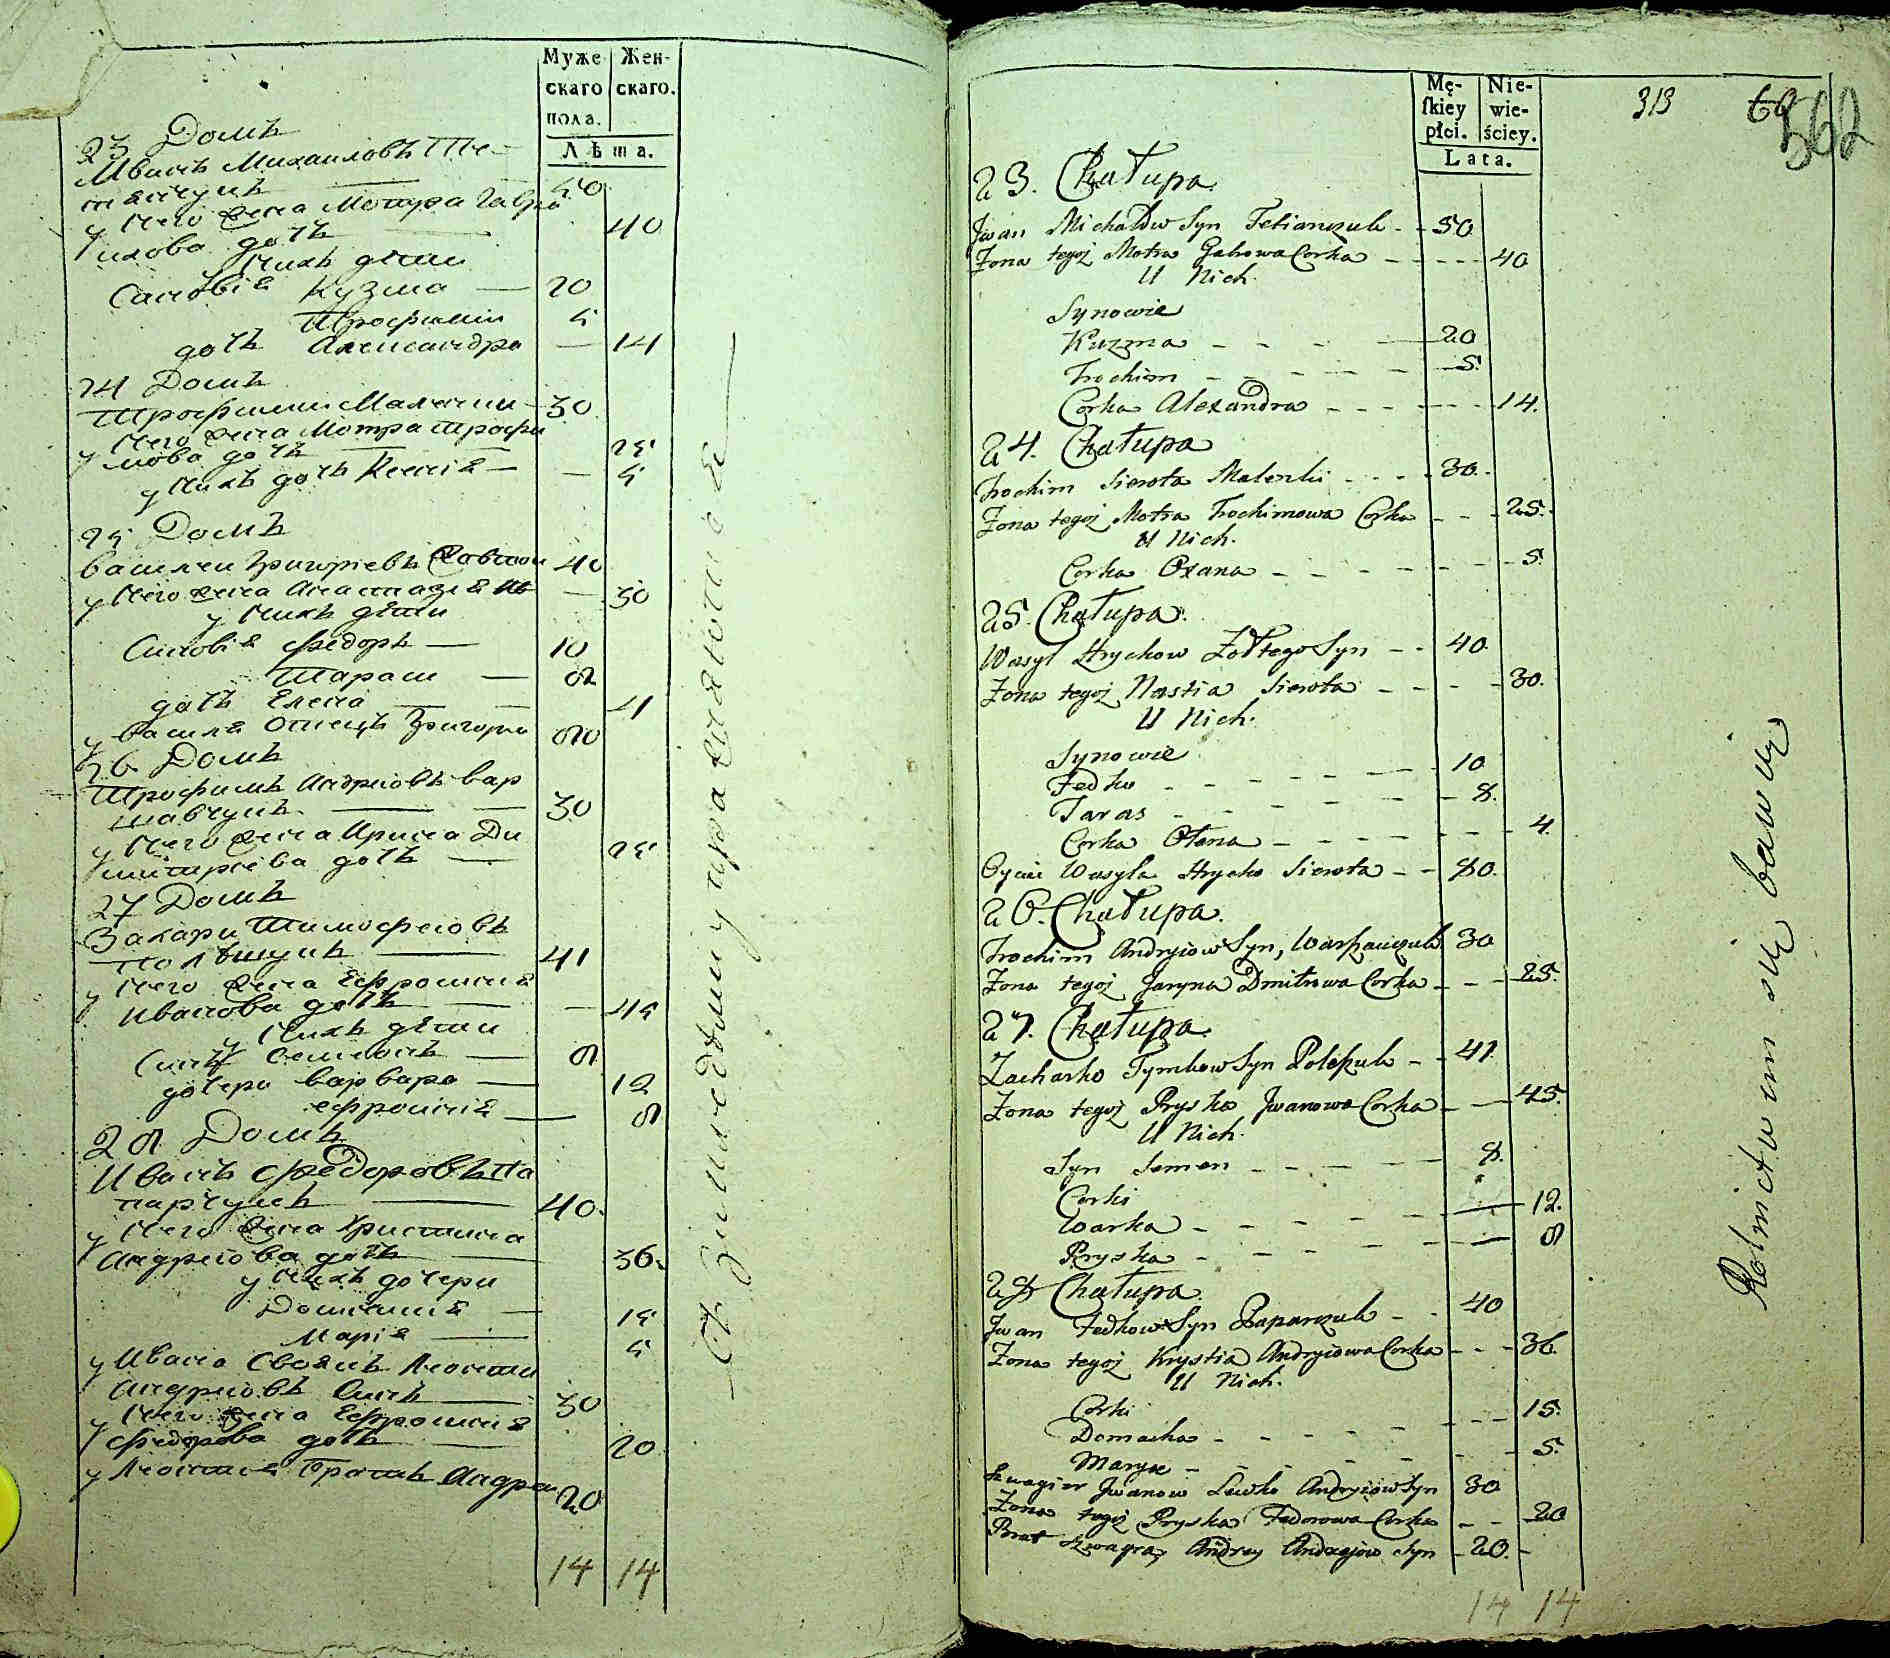 Муже
скаго
пола.
Жен-
скаго.
Лѣта.
23 Домъ
Иванъ Михаиловъ Те-
тянчукъ 50
у него жена Мотра Гаври
илова дочь 40
у нихъ дѣти
Синовія Кузма 20
Трофимъ 5
дочь Александра 14
24 Домъ
Трофимъ Маленки 30
у него жена Мотра Трофи
мова дочь 25
у нихъ дочь Ксенія 5
25 Домъ
Василеи Григоріевъ 40
у него жена Анастазія 30
у нихъ дѣти
Синовія Федоръ 10
Тарасъ 8
дочь Елена 4
у Василя Отецъ Григорей 80
26 Домъ
Трофимъ Андреовъ Вар
шавчукъ 30
у него жена Ирина Ди
митріева дочь 25
27 Домъ
Захари Тимофеовъ
Полѣщукъ 41
у него жена Ефросинія
Иванова дочь 45
у нихъ дѣти
Синъ Семіонъ 8
дочери Варвара 12
Ефросинія 8
28 Домъ
Иванъ Федоровъ Па
парчукъ 40.
у него жена Христина
Андреова дочь 36.
у нихъ дочери
Доманія 15
Марія 5
у Ивана Своякъ Леонти
Андреовъ Синъ 30
у него жена Ефросинія
Федорова дочь 20
у Леонтія Братъ Андреи 20
14 14
313 60
562
Mę-
skiey
płci.
Nie-
wie-
ściey.
Lata.
23. Chałupa.
Jwan Michałów Syn Tetianczuk - - 50
Żona tegoż Motra Gabrowa Corka - - - - 40
U Nich
Synowie
Kuzma - - - - 20
Trochim - - - - 5.
Corka Alexandra - - - - - 14.
24. Chałupa
Trochim Sierota Malenki - - - 30.
Żona tegoż Motra Trochimowa Corka - - - 25.
U Nich.
Corka Oxana - - - - - 5.
25. Chałupa.
Wasyl Hrychow Żołtego Syn - - 40.
Żona tegoż Nastia Sierota - - - - 30.
U Nich.
Synowie
Fedko - - - - 10
Taras - - - - 8.
Corka Olena - - - - - 4.
Oyciec Wasyla Hrycko Sierota - - 80.
26. Chałupa.
Trochim Andryiow Syn, Warszawczuk 30
Żona tegoż Jaryna Dmitrowa Corka - - - 25.
27. Chałupa.
Zacharko Tymkow Syn Poleszuk - - 41.
Żona tegoż Pryska Jwanowa Corka - - 45.
U Nich.
Syn Semen - - - - 8.
Corki
Warka - - - - - 12.
Pryska - - - - - 8
28 Chałupa.
Jwan Fedkow Syn Paparczuk - - 40
Żona tegoż Krystia Andryiowa Corka - - - 36.
U Nich.
Corki
Domacha - - - - - 15.
Marya - - - - - 5.
Szwagier Jwanow Lewko Andryiow Syn 30
Żona tegoż Pryska Fedorowa Corka - - 20
Brat Szwagra Andrey Andryiow Syn - 20. -
14 14
Rolnictwem się bawią